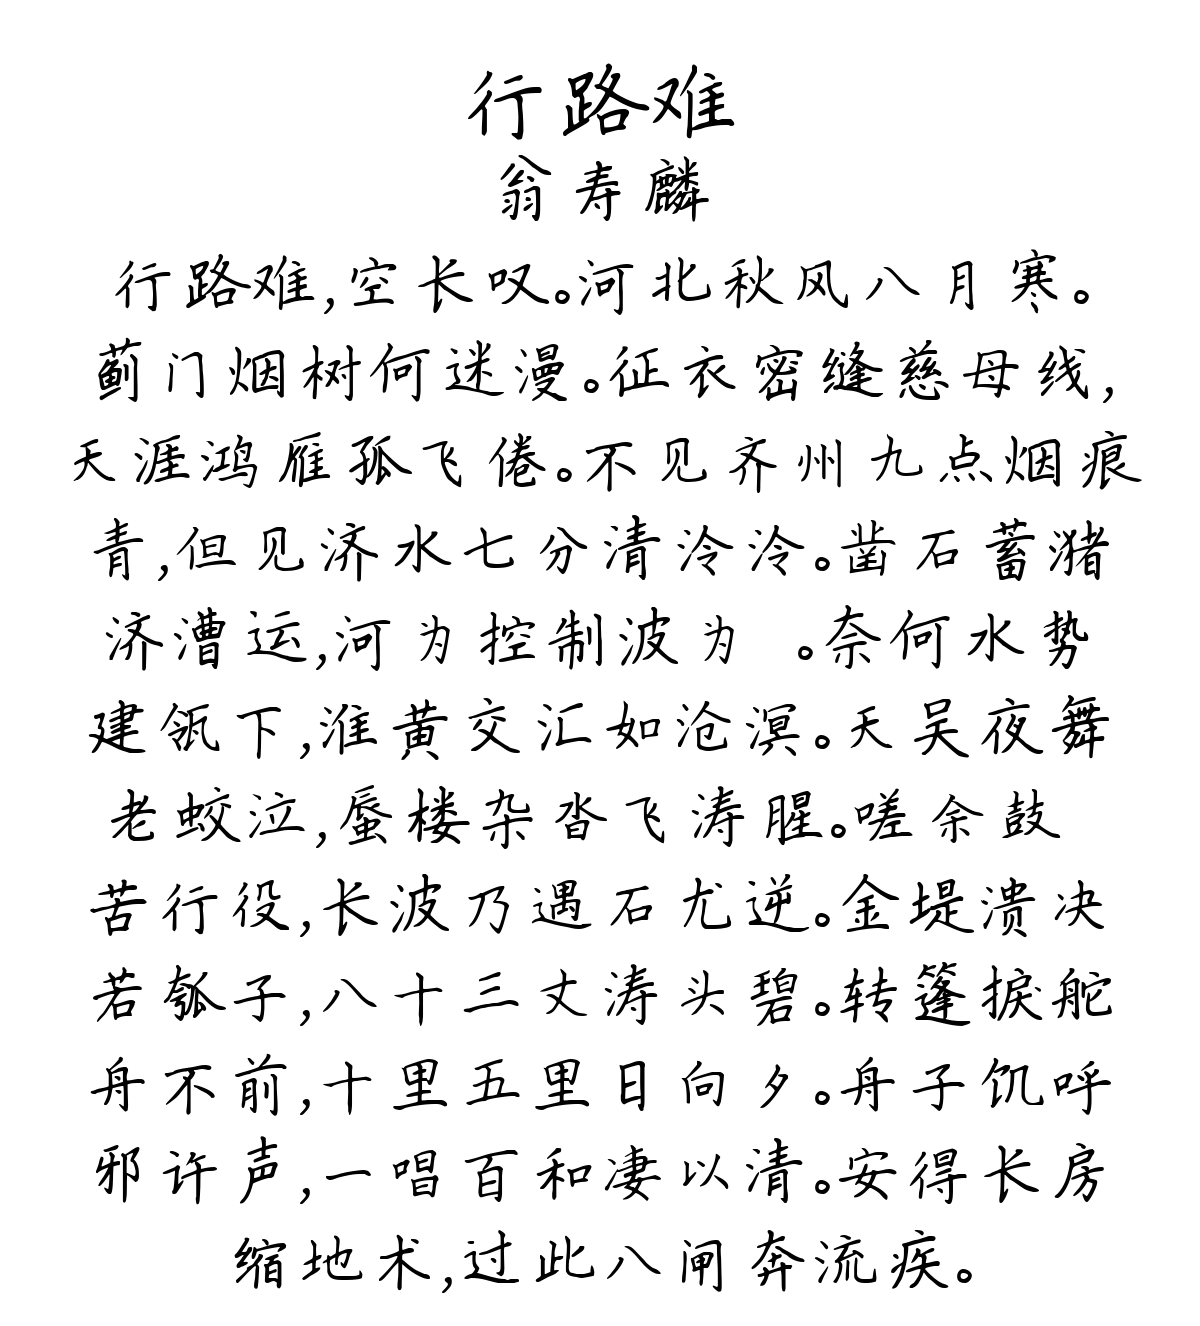 行路难
翁寿麟
行路难,空长叹。河北秋风八月寒。
蓟门烟树何迷漫。征衣密缝慈母线,
天涯鸿雁孤飞倦。不见齐州九点烟痕
青,但见济水七分清泠泠。凿石蓄猪
济漕运,河为控制波为 。奈何水势
建瓴下,淮黄交汇如沧溟。天吴夜舞
老蛟泣,蜃楼杂沓飞涛腥。嗟余鼓
苦行役,长波乃遇石尤逆。金堤溃决
若瓠子,八十三丈涛头碧。转篷捩舵
舟不前,十里五里日向夕。舟子饥呼
邪许声,一唱百和凄以清。安得长房
缩地术,过此八闸奔流疾。